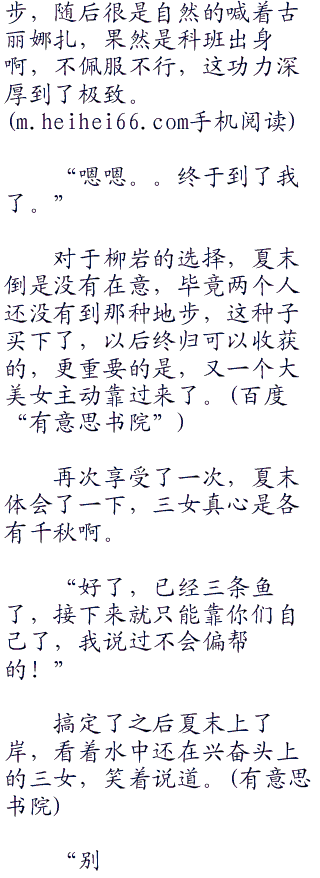 步，随后很是自然的喊着古
丽娜扎，果然是科班出身
啊，不佩服不行，这功力深
厚到了极致。
(m.heihei66.com手机阅读)
“嗯嗯。。终于到了我
了。”
对于柳岩的选择，夏末
倒是没有在意，毕竟两个人
还没有到那种地步，这种子
买下了，以后终归可以收获
的，更重要的是，又一个大
美女主动靠过来了。(百度
“有意思书院”)
再次享受了一次，夏末
体会了一下，三女真心是各
有千秋啊。
“好了，已经三条鱼
了，接下来就只能靠你们自
己了，我说过不会偏帮
的！”
搞定了之后夏末上了
岸，看着水中还在兴奋头上
的三女，笑着说道。(有意思
书院)
“别